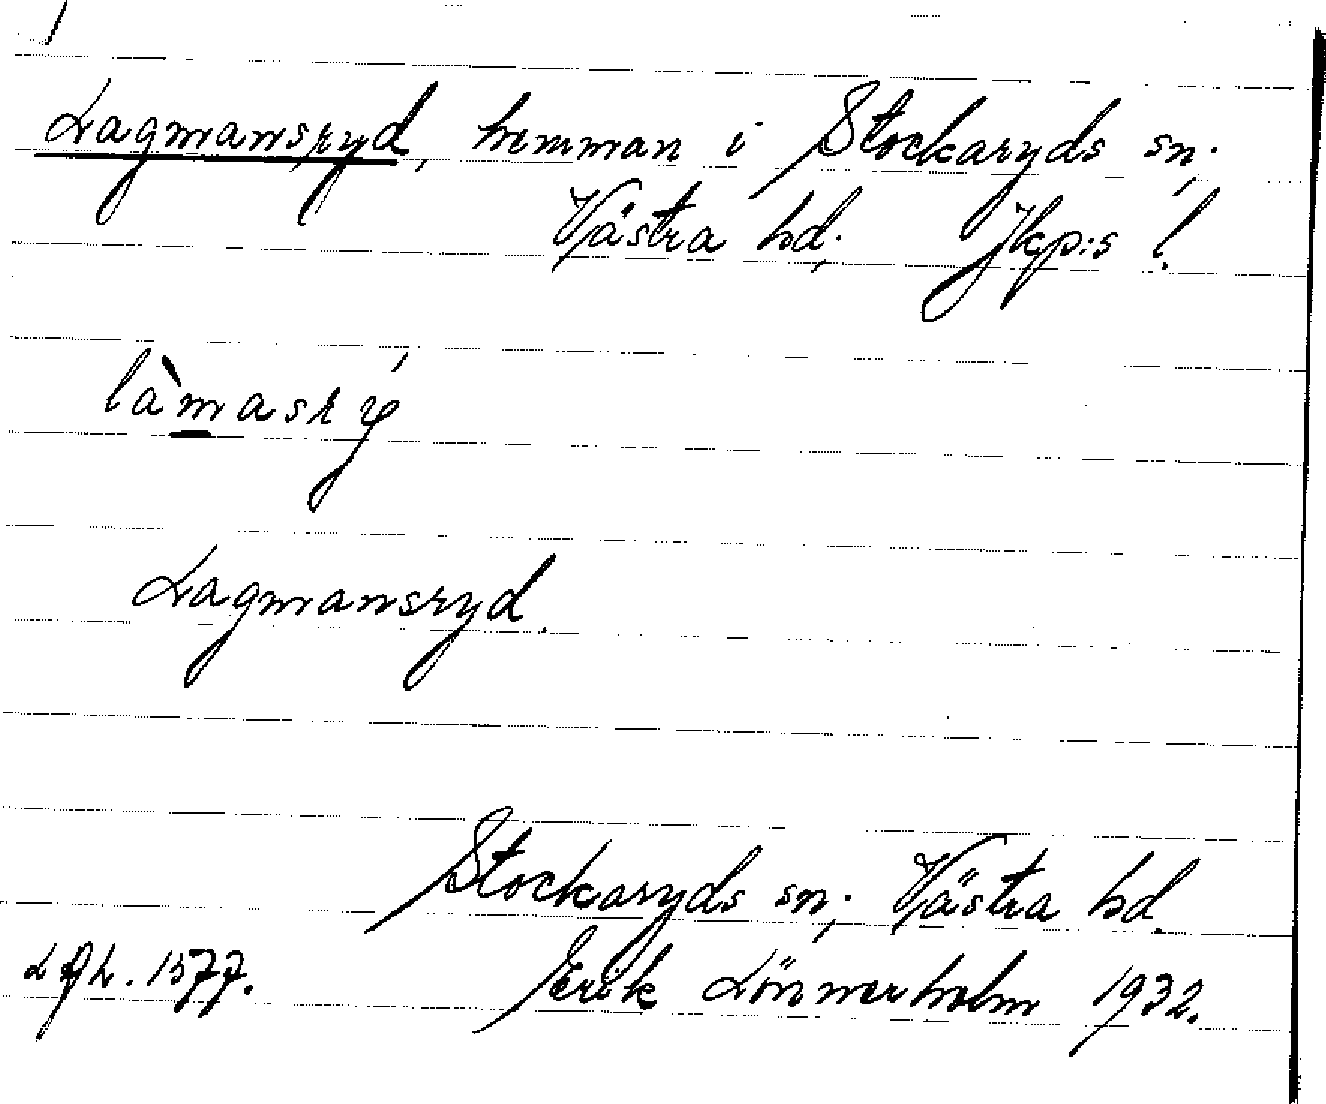 Lagmansryd, hemman i Stockaryds sn;
Västra hd; Jkp:s l.
làmasrý
Lagmansryd.
Stockaryds sn; Västra hd.
1577. Erik Lönnerholm 1932.